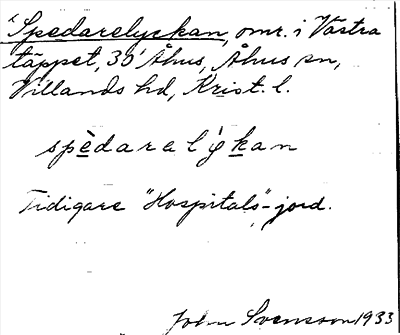 Spedarelyckan, omr. i Västra
täppet, 30 Åhus, Åhus sn,
Villands hd, Krist. l.
spèdaralỳkan
Tidigare "Hospitals"-jord.
John Svensson 1933